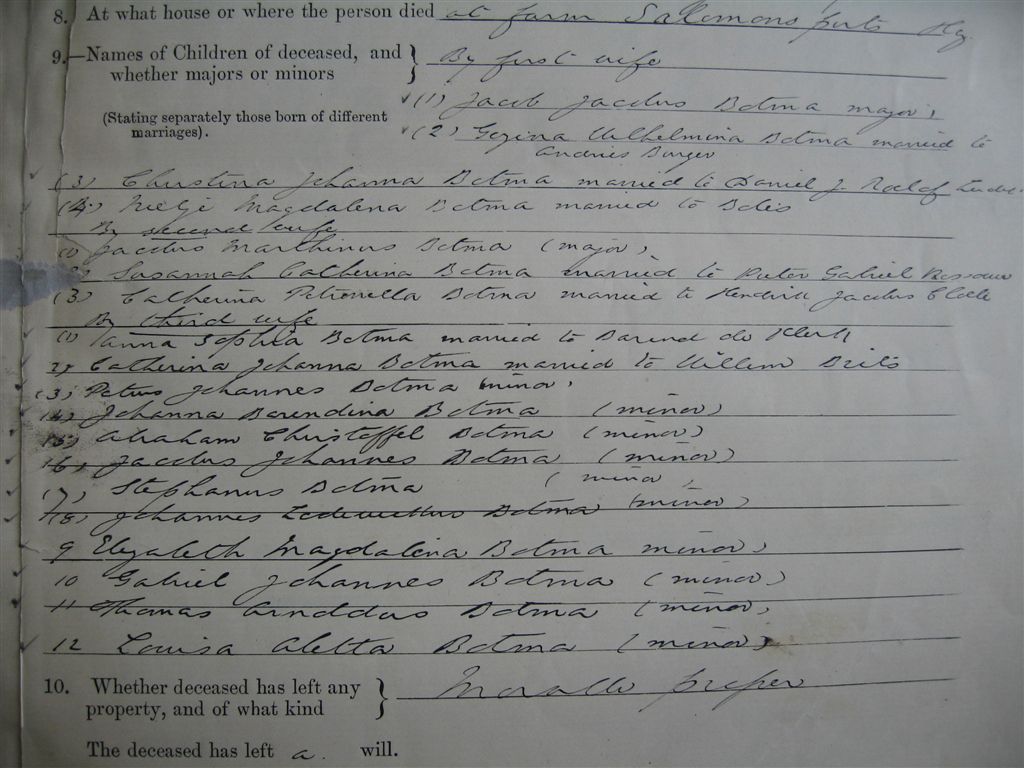 8. At what house or where the person died at farm Sallemons
9.—Names of Children of deceased, and whether majors or minors } By first wife
(Stating separately those born of different marriages).
(1) Jacob Jacobus Botma major,
(2) Gezina Wilhelmina Botma married to
Andries Burger
(3) Christina Johanna Botma married to Daniel J. Roelof
(4) Magdalena Botma married to
By second wife
(1) Jacobus Marthinus Botma (major,
2) Susannah Catherina Botma married to Pieter Gabriel
(3) Catherina Petronella Botma married to Hendrik Jacobus Cloete
By third wife
(1) Anna Sophia Botma married to Barend de Klerk
2) Catherina Johanna Botma married to Willem Brits
(3) Petrus Johannes Botma minor,
(4) Johanna Barendina Botma (minor)
(5) Abraham Christoffel Botma (minor)
(6) Jacobus Johannes Botma (minor)
(7) Stephanus Botma (minor,
(8) Johannes Botma (minor)
9 Elizabeth Magdalena Botma minor)
10 Gabriel Johannes Botma (minor)
11 Thomas Botma (minor,
12 Louisa Aletta Botma (minor)
10. Whether deceased has left any property, and of what kind }
The deceased has left a will.